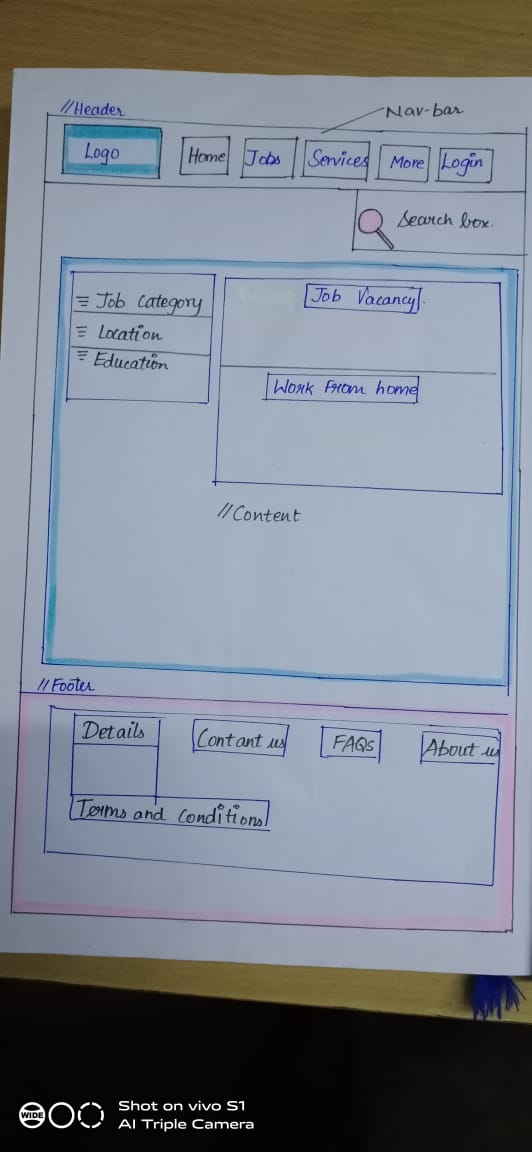 //Header
Nav-bar
Logo Home Jobs Services More Login
Search box.
Job Category
Location
Education
Job Vacancy.
Work From home
//Content
//Footer
Details Contant us FAQs About us
Terms and conditions
WIDE
Shot on vivo S1
AI Triple Camera